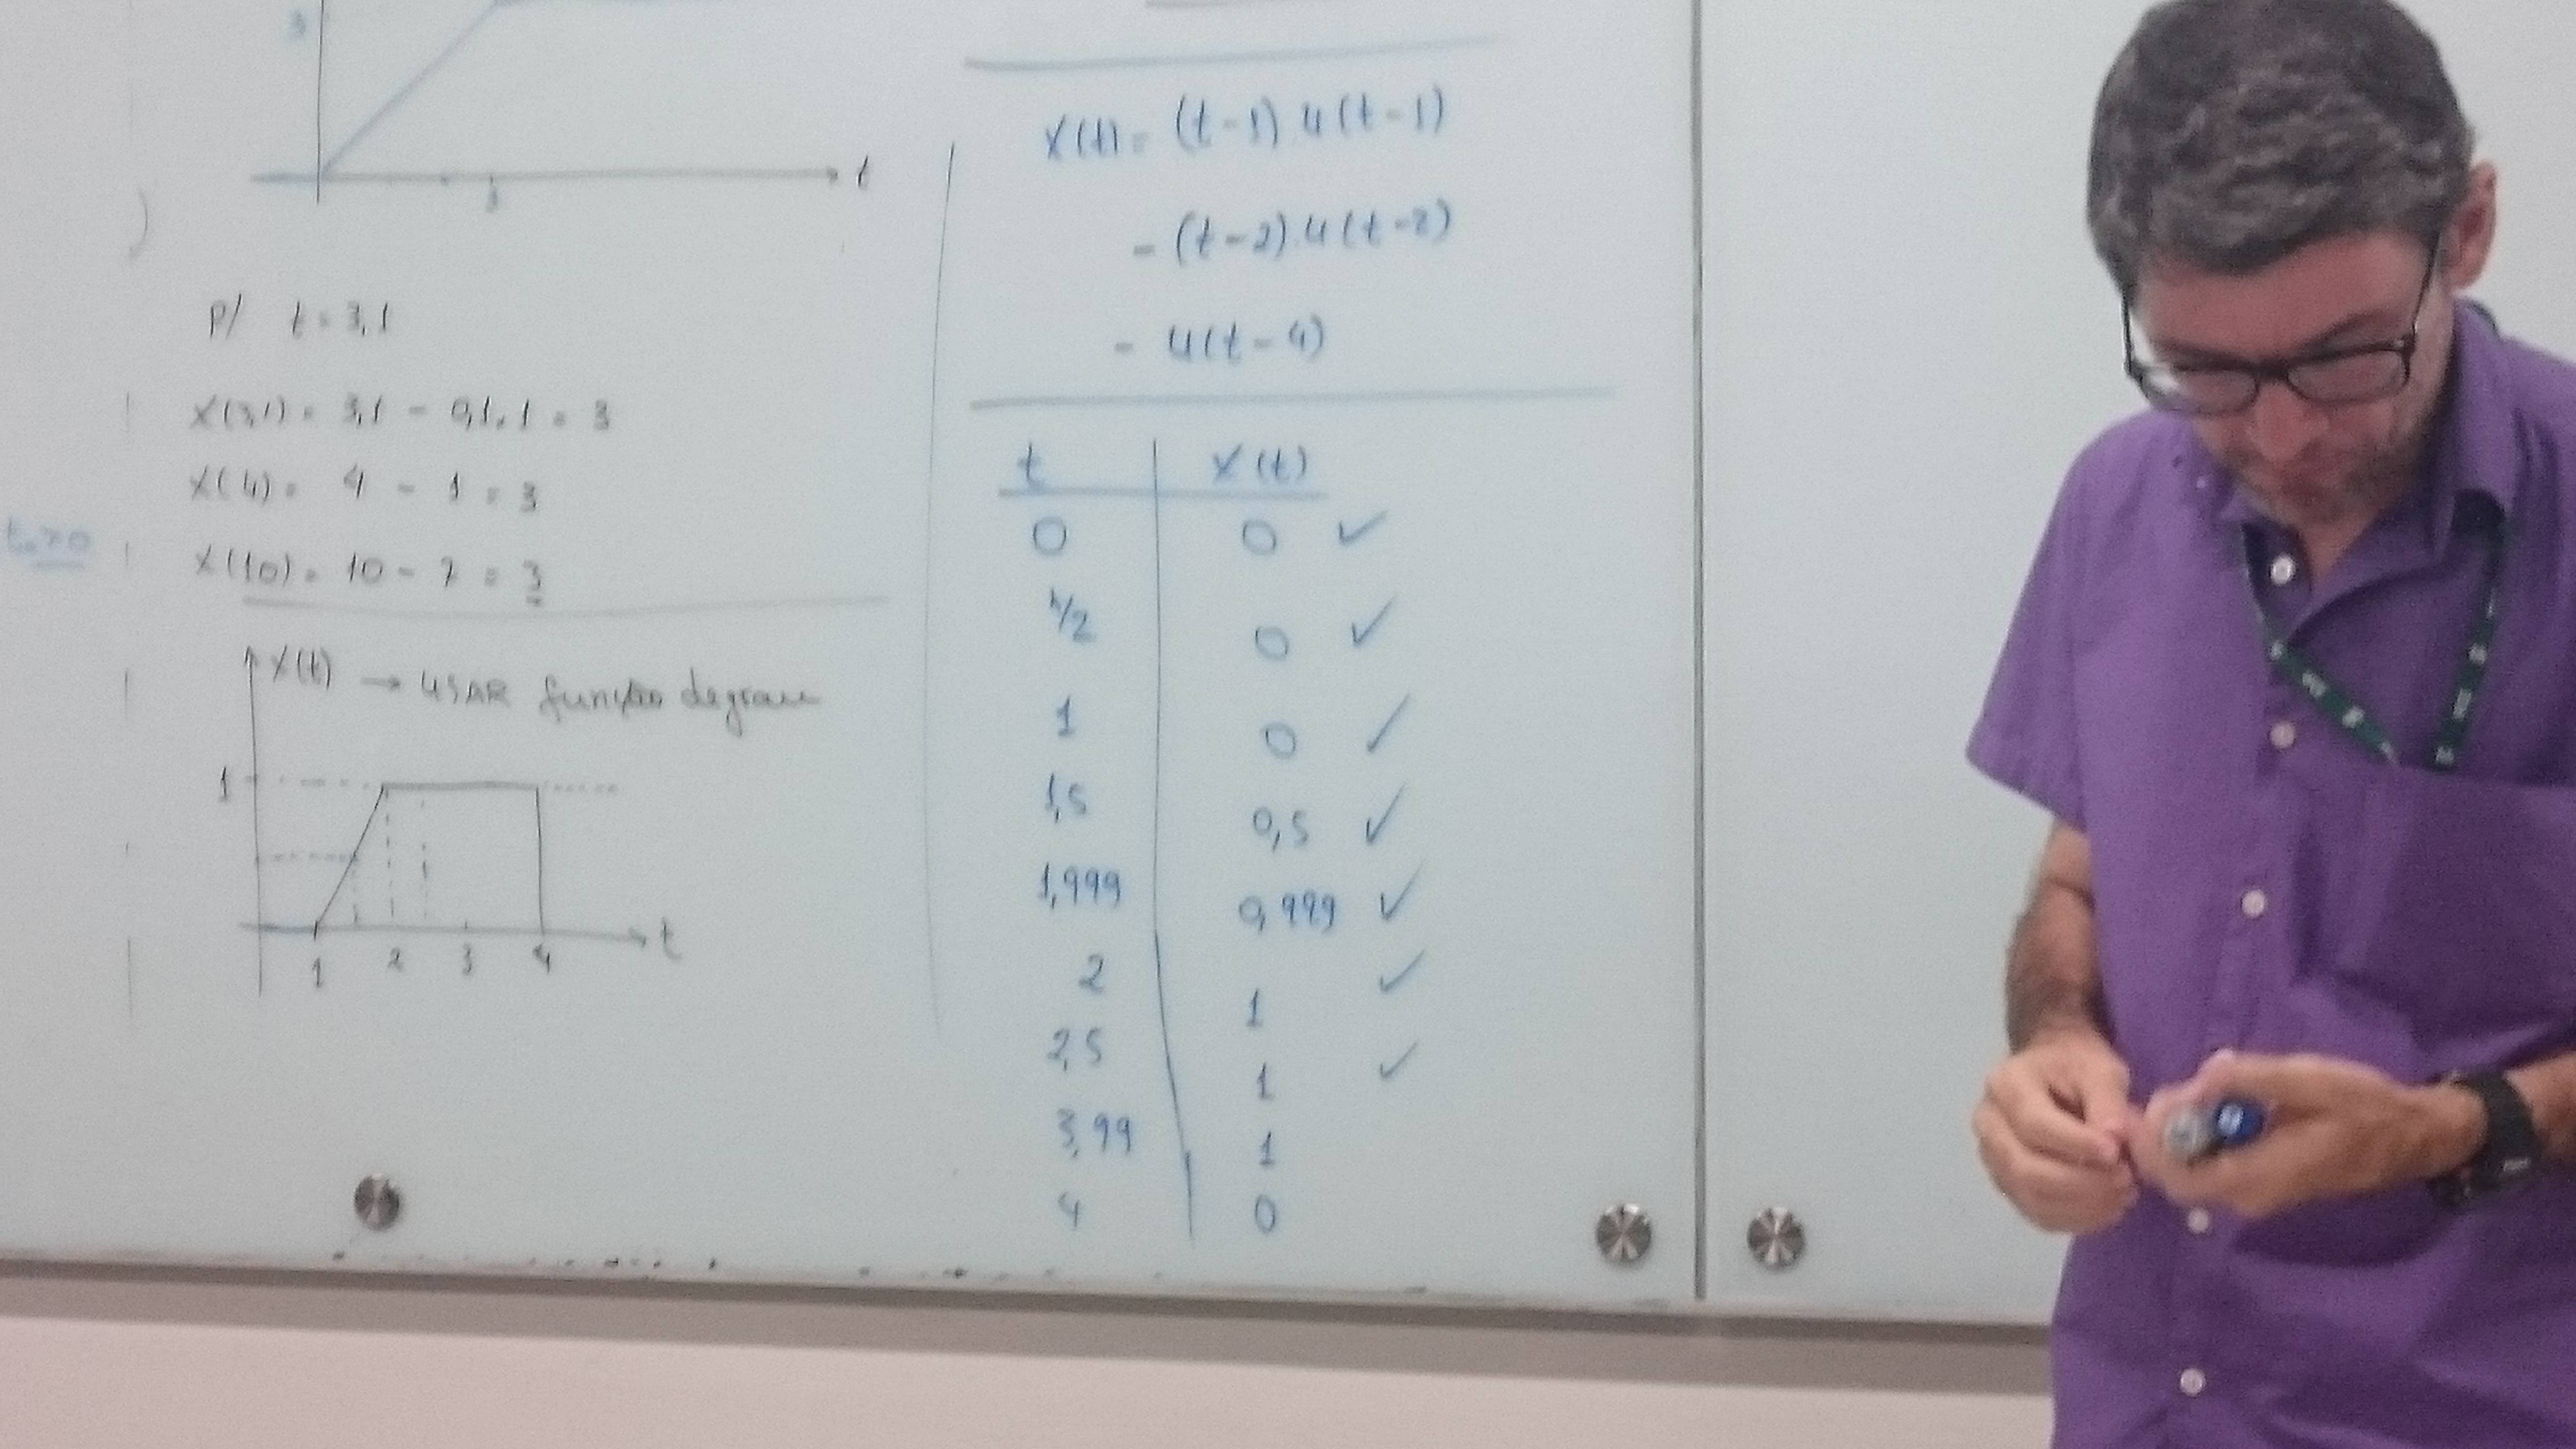 3
t
3
P/ t = 3,1
X(3,1) = 3,1 - 0,1.1 = 3
X(4) = 4 - 1 = 3
X(10) = 10 - 7 = 3
t₀>0
X(t) → USAR função degrau
1
t
1 2 3 4
X(t) = (t-1).u(t-1)
- (t-2).u(t-2)
- u(t-4)
t X(t)
0 0 ✓
1/2 0 ✓
1 0 ✓
1,5 0,5 ✓
1,999 0,999 ✓
2 1 ✓
2,5 1 ✓
3,99 1
4 0